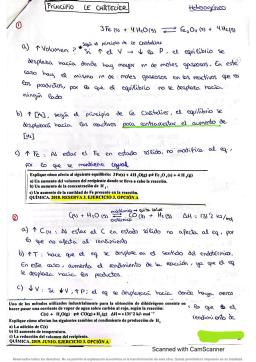 PRINCIPIO LE CHATELIER
Heterogéneo
① 3Fe(s) + 4H₂O(g) ⇌ Fe₃O₄(s) + 4H₂(g)
según el principio de Le Chatelier
a) ↑ Volumen: Si el V → ↓ P, el equilibrio se
desplaza hacia donde hay mayor nº de moles gaseosos. En este
caso hay el mismo nº de moles gaseosos en los reactivos que en
los productos, por lo que el equilibrio no se desplaza hacia
ningún lado
b) ↑ [H₂], según el principio de Le Chatelier, el equilibrio se
desplazará hacia los reactivos para contrarrestar el aumento de
[H₂]
c) ↑ Fe: Al estar el Fe en estado sólido, no modifica el eq.,
por lo que se mantiene igual
Explique cómo afecta al siguiente equilibrio: 3Fe(s) + 4H₂O(g) ⇌ Fe₃O₄(s) + 4H₂(g)
a) Un aumento del volumen del recipiente donde se lleva a cabo la reacción.
b) Un aumento de la concentración de H₂.
c) Un aumento de la cantidad de Fe presente en la reacción.
QUÍMICA. 2018. RESERVA 3. EJERCICIO 3. OPCIÓN A
② C(s) + H₂O(g) ⇌ CO(g) + H₂(g) ΔH = 131'2 kJ/mol
a) ↑ C(s): Al estar el C en estado sólido no afecta al eq., por
lo que no afecta al rendimiento
b) ↑ T: hace que el eq. se desplace en el sentido del endotérmico.
En este caso, aumenta el rendimiento de la reacción, ya que el eq
se desplaza hacia los productos.
c) ↓ V: Si ↓ V, ↑ P; el eq se desplazará hacia donde haya menos
Uno de los métodos utilizados industrialmente para la obtención de dihidrógeno consiste en
hacer pasar una corriente de vapor de agua sobre carbón al rojo, según la reacción:
C(s) + H₂O(g) ⇌ CO(g) + H₂(g) ΔH = +131'2 kJ·mol⁻¹
Explique cómo afectan los siguientes cambios al rendimiento de producción de H₂
a) La adición de C(s)
b) El aumento de temperatura.
c) La reducción del volumen del recipiente.
QUÍMICA. 2019. JUNIO. EJERCICIO 3. OPCIÓN A
lo que el
rendimiento de
Scanned with CamScanner